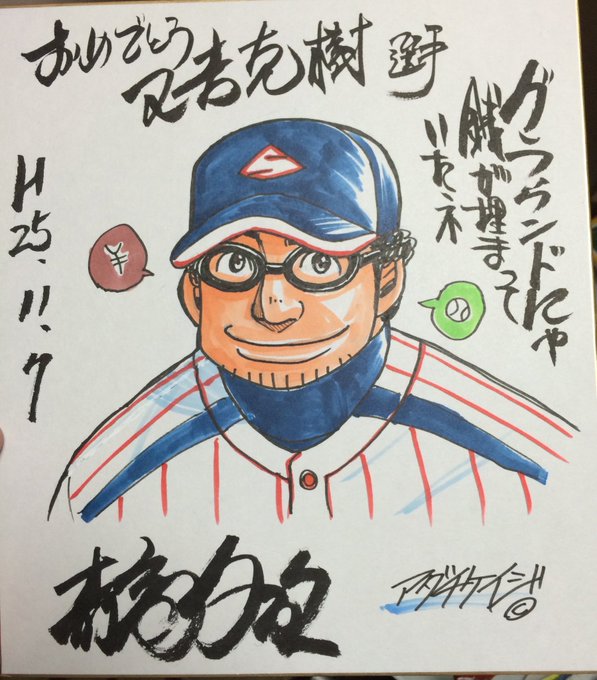 おめでとう
又吉克樹 選手
グラウンドにゃ
銭が埋まって
いたネ
H25.11.7
¥
S
森高夕次
アダチケイジ©